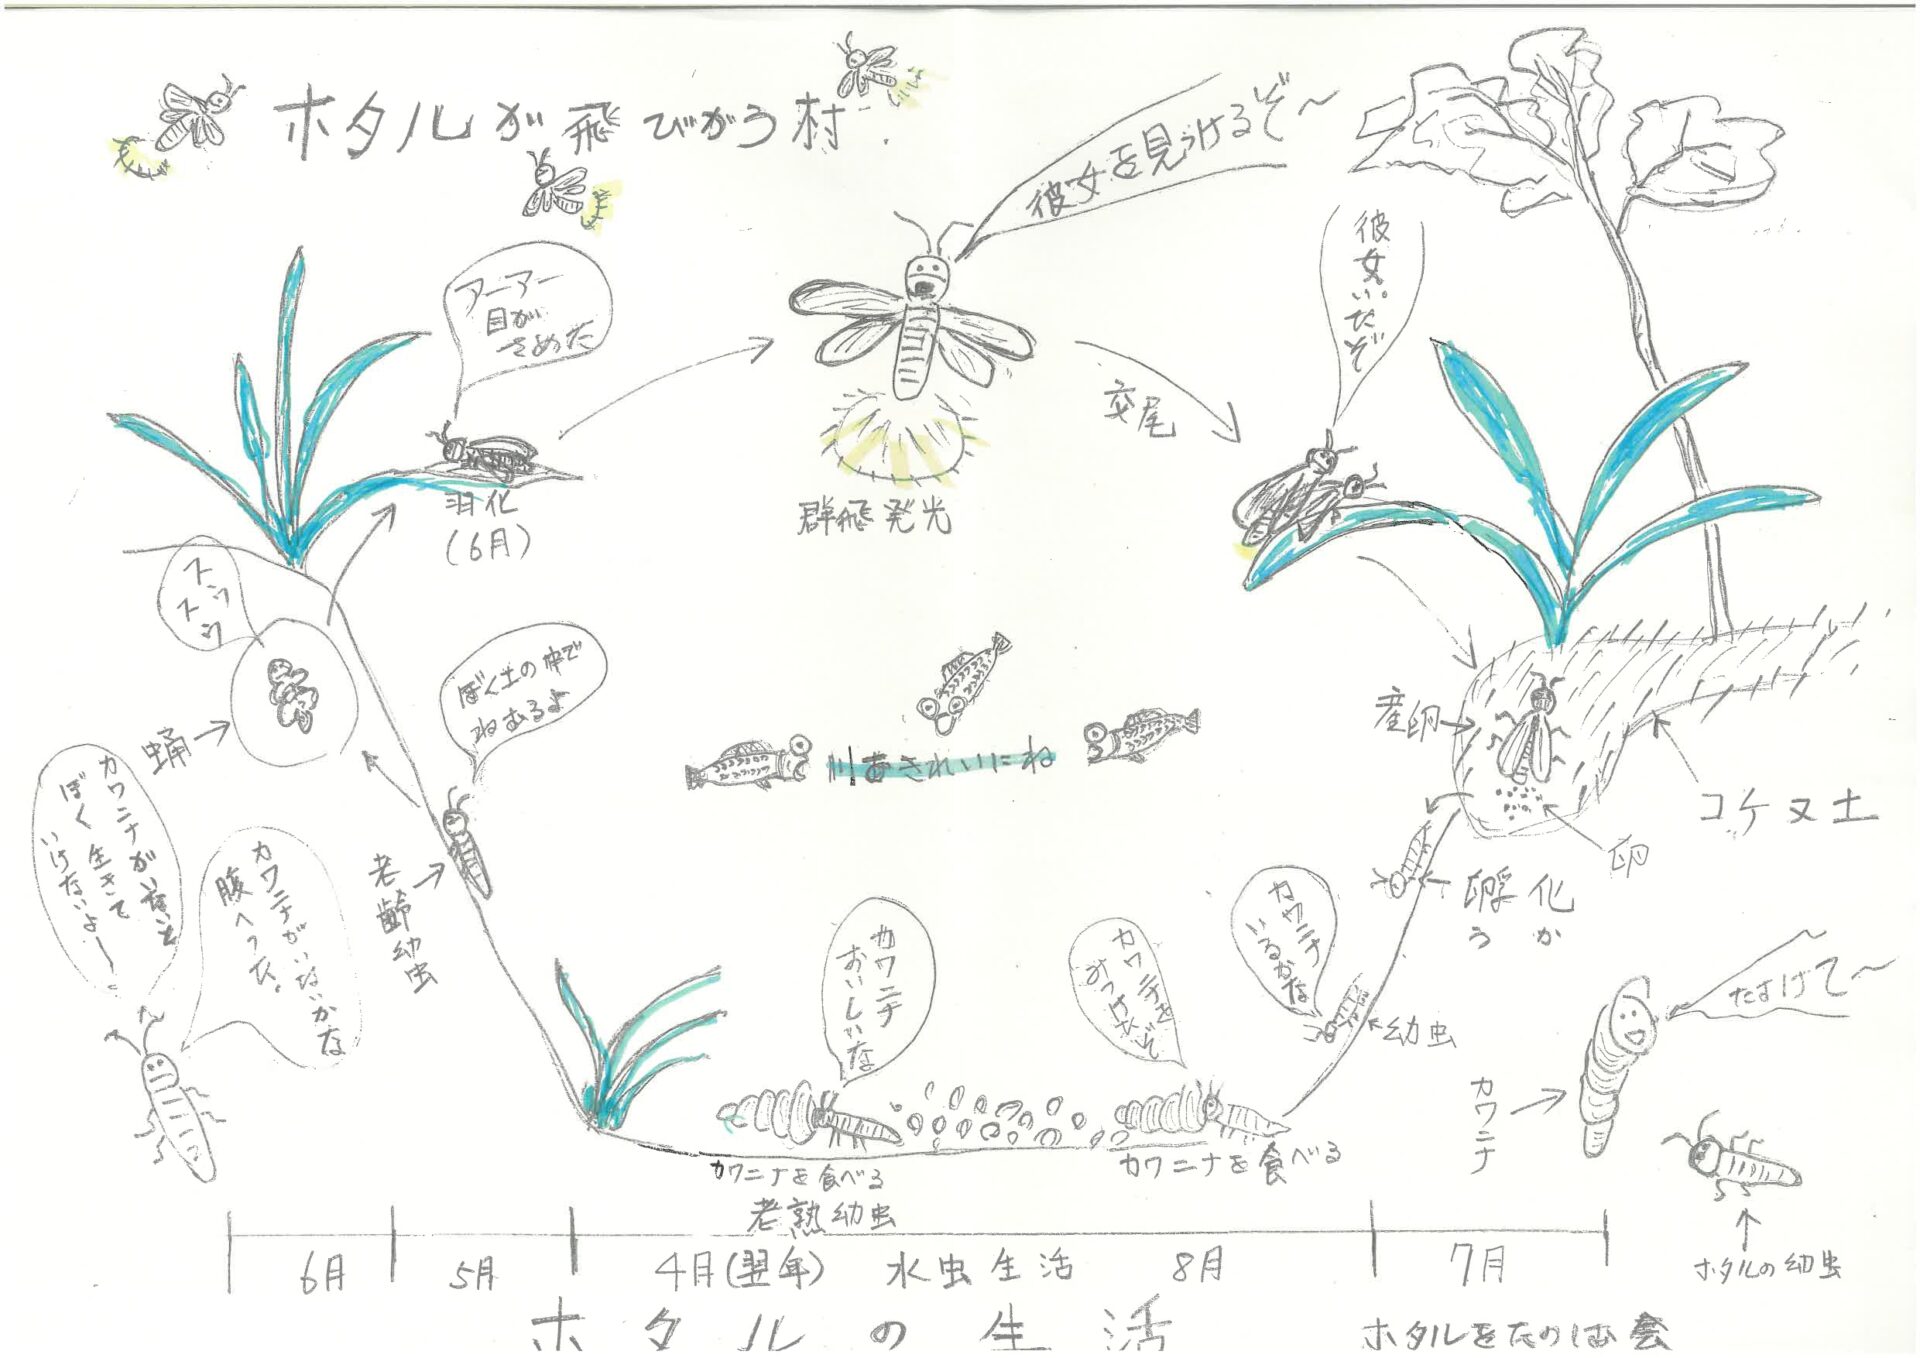 ホタルが飛びがう村
彼女を見つけるぞ〜
彼女いたぞ
アーアー
目が
さめた
羽化
(6月)
群飛発光
交尾
ぼく土の中で
ねむるよ
蛹
川をきれいにね
産卵
コケヌ土
卵
孵化
うか
カワニナがいないと
ぼく生きて
いけないよー
カワニナがいないかな
腹へった。
老齢幼虫
カワニナ
おいしいな
カワニナを
みつけたぞ
カワニナ
いるかな
幼虫
たすけて〜
カワニナ
カワニナを食べる
老熟幼虫
カワニナを食べる
6月
5月
4月(翌年)
水虫生活
8月
7月
ホタルの幼虫
ホタルの生活
ホタルをたのしむ会